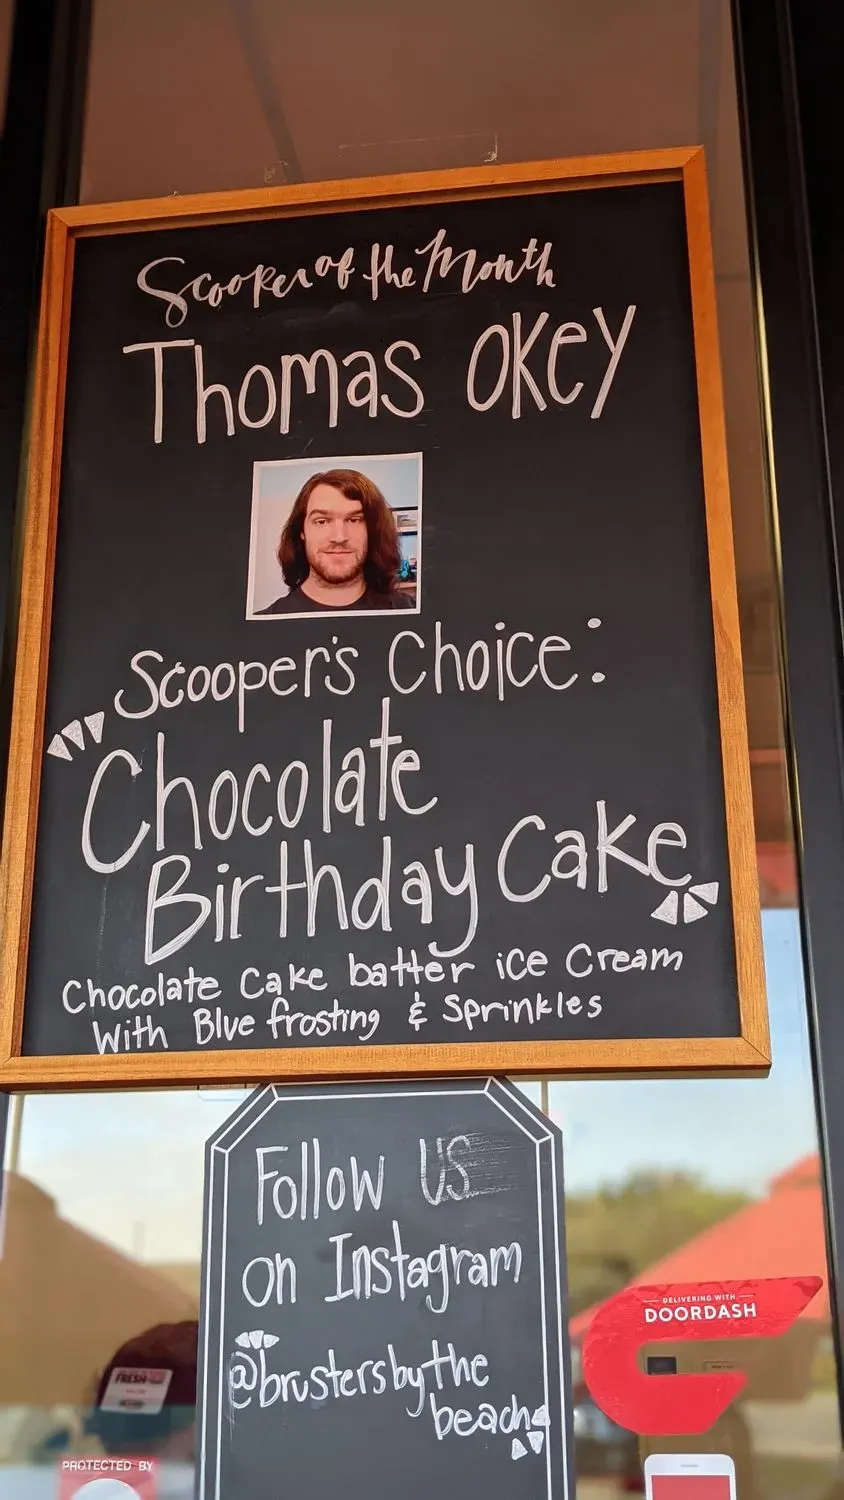 Scooper of the Month
Thomas Okey
Scooper's Choice:
Chocolate
Birthday Cake
Chocolate Cake batter ice Cream
With Blue frosting & Sprinkles
Follow US
on Instagram
@brustersbythe
beach
DELIVERING WITH
DOORDASH
FRESH
PROTECTED BY